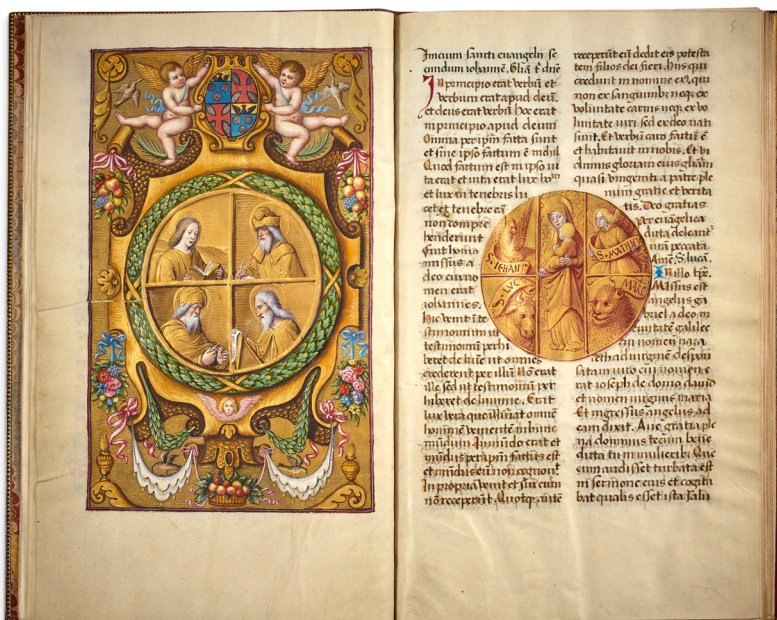 Inicium sancti euangelij se
cundum iohannē. Gliā t̄ dñe
In principio erat verbū et
verbum erat apud deū.
et deus erat verbū hoc erat
in principio apud deum
Omnia per ip̄m facta sunt
et sine ipso factum ē nichil
Quod factum est in ipso ui
ta erat et uita erat lux hoīm
et lux in tenebris lu
cet et tenebre eā
non compre
henderunt
fuit homo
missus a
deo cui no
men erat
iohannes.
hic venit in te
stimonium ut
testimonium perhi
beret de lumīe ut omnes
crederent per illum Nō erat
ille sed ut testimonium per
hiberet de lumine. Erat
lux vera que illūiat omnē
hominē venientē in hunc
mundum In mundo erat et
mūdus per ip̄m factus est
et mūdus eū non cognouit
In propria venit et sui eum
nō receperūt. Quotqt autē
receperūt eū dedit eis potesta
tem filios dei fieri. his qui
credunt in nomine eiꝰ, qui
non ex sanguinibꝫ neqꝫ ex
voluntate carnis neqꝫ ex vo
luntate viri sed ex deo nati
sunt. Et verbū caro factū ē
et habitauit in nobis. Et vi
dimus gloriam eius gliām
quasi vnigeniti a patre ple
num gratie et verita
tis. Deo gratias.
Per euāgelica
dicta deleant̄
nr̄a peccata.
Amē. S. lucā.
In illo tp̄e.
Missus est
angelus ga
briel a deo in
ciuitatē galilee
cui nomen naza
reth ad virginē despon
satam viro cui nomen e
rat ioseph de domo dauid
et nomen virginis maria
Et ingressus angelus ad
eam dixit. Aue gratia ple
na dominus tecum bene
dicta tu in mulieribꝫ Que
cum audisset turbata est
in sermone eius et cogita
bat qualis esset ista salu
S. IEHAN
S. MATHIEV
S. LVC
MARC